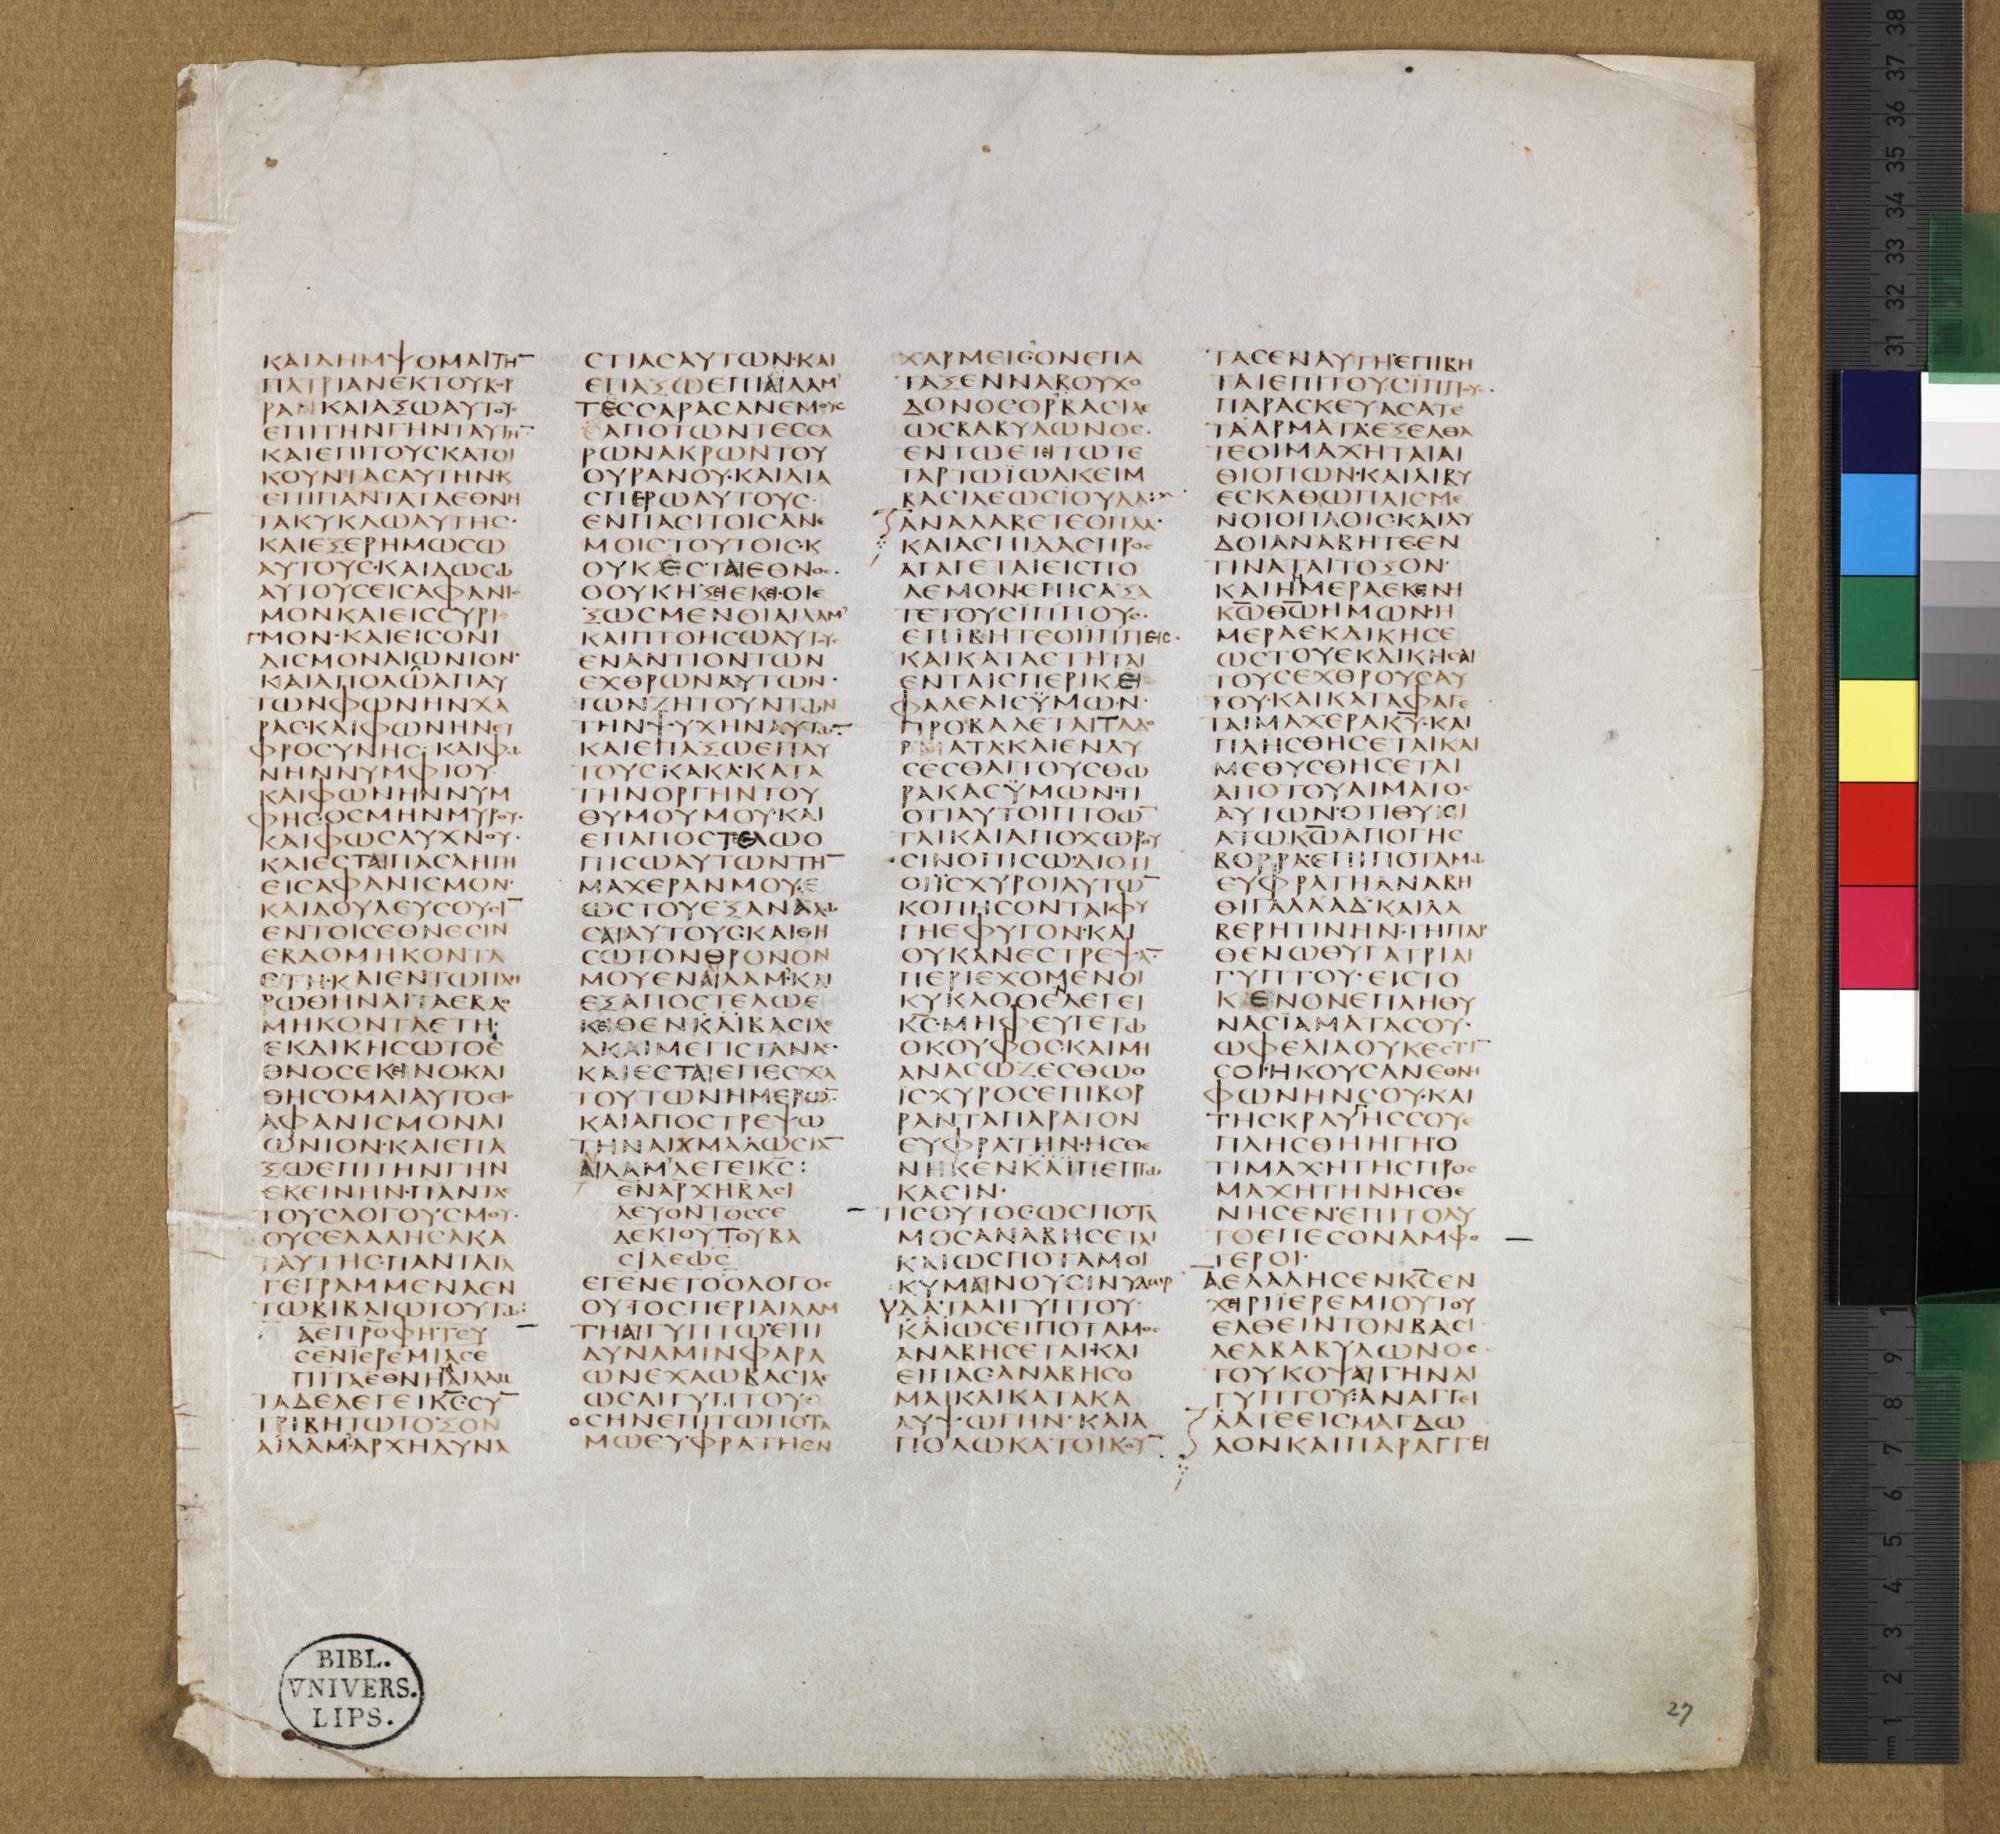 ΚΑΙΛΗΜΨΟΜΑΙΤΗ
ΠΑΤΡΙΑΝΕΚΤΟΥΚΡ
ΡΑΝΚΑΙΑΞΩΑΥΤΟΥΣ
ΕΠΙΤΗΝΓΗΝΤΑΥΤΗ
ΚΑΙΕΠΙΤΟΥΣΚΑΤΟΙ
ΚΟΥΝΤΑΣΑΥΤΗΝΚ
ΕΠΙΠΑΝΤΑΤΑΕΘΝΗ
ΤΑΚΥΚΛΩΑΥΤΗΣ·
ΚΑΙΕΞΕΡΗΜΩΣΩ
ΑΥΤΟΥΣ·ΚΑΙΔΩΣΩ
ΑΥΤΟΥΣΕΙΣΑΦΑΝΙ
ΜΟΝΚΑΙΕΙΣΣΥΡΙ
ΓΜΟΝ·ΚΑΙΕΙΣΟΝΙ
ΔΙΣΜΟΝΑΙΩΝΙΟΝ·
ΚΑΙΑΠΟΛΩΑΠΑΥ
ΤΩΝΦΩΝΗΝΧΑ
ΡΑΣ·ΚΑΙΦΩΝΗΝΕΥ
ΦΡΟΣΥΝΗΣ·ΚΑΙΦΩ
ΝΗΝΝΥΜΦΙΟΥ·
ΚΑΙΦΩΝΗΝΝΥΜ
ΦΗΣ·ΟΣΜΗΝΜΥΡΟΥ·
ΚΑΙΦΩΣΛΥΧΝΟΥ·
ΚΑΙΕΣΤΑΙΠΑΣΑΗΓΗ
ΕΙΣΑΦΑΝΙΣΜΟΝ·
ΚΑΙΔΟΥΛΕΥΣΟΥΣΙ
ΕΝΤΟΙΣΕΘΝΕΣΙΝ
ΕΒΔΟΜΗΚΟΝΤΑ
ΕΤΗ·ΚΑΙΕΝΤΩΠΛΗ
ΡΩΘΗΝΑΙΤΑΕΒΔΟ
ΜΗΚΟΝΤΑΕΤΗ·
ΕΚΔΙΚΗΣΩΤΟΕ
ΘΝΟΣΕΚΕΙΝΟ·ΚΑΙ
ΘΗΣΟΜΑΙΑΥΤΟΕΙΣ
ΑΦΑΝΙΣΜΟΝΑΙ
ΩΝΙΟΝ·ΚΑΙΕΠΑ
ΞΩΕΠΙΤΗΝΓΗΝ
ΕΚΕΙΝΗΝ·ΠΑΝΤΑΣ
ΤΟΥΣΛΟΓΟΥΣΜΟΥ·
ΟΥΣΕΛΑΛΗΣΑΚΑ
ΤΑΥΤΗΣ·ΠΑΝΤΑΤΑ
ΓΕΓΡΑΜΜΕΝΑΕΝ
ΤΩΒΙΒΛΙΩΤΟΥΤΩ:
ΑΕΠΡΟΦΗΤΕΥ
ΣΕΝΙΕΡΕΜΙΑΣΕ
ΠΙΤΑΕΘΝΗΤΑΑΙΛΑΜ
ΤΑΔΕΛΕΓΕΙΚΣ·ΣΥ
ΤΡΙΒΗΤΩΤΟΞΟΝ
ΑΙΛΑΜ·ΑΡΧΗΔΥΝΑ
ΣΤΙΑΣΑΥΤΩΝ·ΚΑΙ
ΕΠΑΞΩΕΠΙΑΙΛΑΜ
ΤΕΣΣΑΡΑΣΑΝΕΜΟΥΣ
ΑΠΟΤΩΝΤΕΣΣΑ
ΡΩΝΑΚΡΩΝΤΟΥ
ΟΥΡΑΝΟΥ·ΚΑΙΔΙΑ
ΣΠΕΡΩΑΥΤΟΥΣ·
ΕΝΠΑΣΙΤΟΙΣΑΝΕ
ΜΟΙΣΤΟΥΤΟΙΣ·Κ
ΟΥΚΕΣΤΑΙΕΘΝΟΣ·
ΟΟΥΚΗΞΕΙΕΚΕΙ·ΟΙΕ
ΞΩΣΜΕΝΟΙΑΙΛΑΜ
ΚΑΙΠΤΟΗΣΩΑΥΤΟΥΣ
ΕΝΑΝΤΙΟΝΤΩΝ
ΕΧΘΡΩΝΑΥΤΩΝ·
ΤΩΝΖΗΤΟΥΝΤΩΝ
ΤΗΝΨΥΧΗΝΑΥΤΩ
ΚΑΙΕΠΑΞΩΕΠΑΥ
ΤΟΥΣΚΑΚΑ·ΚΑΤΑ
ΤΗΝΟΡΓΗΝΤΟΥ
ΘΥΜΟΥΜΟΥ·ΚΑΙ
ΕΠΑΠΟΣΤΕΛΩΟ
ΠΙΣΩΑΥΤΩΝΤΗ
ΜΑΧΕΡΑΝΜΟΥ·Ε
ΩΣΤΟΥΕΞΑΝΑΛΩ
ΣΑΙΑΥΤΟΥΣ·ΚΑΙΘΗ
ΣΩΤΟΝΘΡΟΝΟΝ
ΜΟΥΕΝΑΙΛΑΜ·ΚΑΙ
ΕΞΑΠΟΣΤΕΛΩΕ
ΚΕΙΘΕΝΚΑΙΒΑΣΙΛΕ
ΑΚΑΙΜΕΓΙΣΤΑΝΑΣ·
ΚΑΙΕΣΤΑΙΕΠΕΣΧΑ
ΤΟΥΤΩΝΗΜΕΡΩ
ΚΑΙΑΠΟΣΤΡΕΨΩ
ΤΗΝΑΙΧΜΑΛΩΣΙΑ
ΑΙΛΑΜ·ΛΕΓΕΙΚΣ:
ΕΝΑΡΧΗΒΑΣΙ
ΛΕΥΟΝΤΟΣΣΕ
ΔΕΚΙΟΥΤΟΥΒΑ
ΣΙΛΕΩΣ
ΕΓΕΝΕΤΟΟΛΟΓΟΣ
ΟΥΤΟΣΠΕΡΙΑΙΛΑΜ
ΤΗΑΙΓΥΠΤΩ·ΕΠΙ
ΔΥΝΑΜΙΝΦΑΡΑ
ΩΝΕΧΑΩΒΑΣΙΛΕ
ΩΣΑΙΓΥΠΤΟΥ·
ΟΣΗΝΕΠΙΤΩΠΟΤΑ
ΜΩΕΥΦΡΑΤΗΕΝ
ΧΑΡΜΕΙΣ·ΟΝΕΠΑ
ΤΑΞΕΝΝΑΒΟΥΧΟ
ΔΟΝΟΣΟΡΒΑΣΙΛΕ
ΩΣΒΑΒΥΛΩΝΟΣ·
ΕΝΤΩΕΤΙΤΩΤΕ
ΤΑΡΤΩΙΩΑΚΕΙΜ
ΒΑΣΙΛΕΩΣΙΟΥΔΑ:
ΑΝΑΛΑΒΕΤΕΟΠΛΑ·
ΚΑΙΑΣΠΙΔΑΣΠΡΟΣ
ΑΓΑΓΕΤΑΙΕΙΣΠΟ
ΛΕΜΟΝ·ΕΠΙΣΑΞΑ
ΤΕΤΟΥΣΙΠΠΟΥΣ·
ΕΠΙΒΗΤΕΟΙΙΠΠΕΙΣ·
ΚΑΙΚΑΤΑΣΤΗΤΑΙ
ΕΝΤΑΙΣΠΕΡΙΚΕ
ΦΑΛΕΑΙΣΥΜΩΝ·
ΠΡΟΒΑΛΕΤΑΙΤΑΔΟ
ΡΑΤΑ·ΚΑΙΕΝΔΥ
ΣΕΣΘΑΙΤΟΥΣΘΩ
ΡΑΚΑΣΥΜΩΝ·ΤΙ
ΟΤΙΑΥΤΟΙΠΤΟΩ
ΤΑΙΚΑΙΑΠΟΧΩΡΟΥ
ΣΙΝΟΠΙΣΩ·ΔΙΟΤΙ
ΟΙΙΣΧΥΡΟΙΑΥΤΩ
ΚΟΠΗΣΟΝΤΑΙ·ΦΥ
ΓΗΕΦΥΓΟΝ·ΚΑΙ
ΟΥΚΑΝΕΣΤΡΕΨΑ
ΠΕΡΙΕΧΟΜΕΝΟΙ
ΚΥΚΛΟΘΕΝΛΕΓΕΙ
ΚΣ·ΜΗΦΕΥΓΕΤΩ
ΟΚΟΥΦΟΣ·ΚΑΙΜΗ
ΑΝΑΣΩΖΕΣΘΩΟ
ΙΣΧΥΡΟΣΕΠΙΒΟΡ
ΡΑΝΤΑΠΑΡΑΤΟΝ
ΕΥΦΡΑΤΗΝ·ΗΣΘΕ
ΝΗΚΕΝΚΑΙΠΕΠΤΩ
ΚΑΣΙΝ·
ΤΙΣΟΥΤΟΣ·ΩΣΠΟΤΑ
ΜΟΣΑΝΑΒΗΣΕΤΑΙ
ΚΑΙΩΣΠΟΤΑΜΟΙ
ΚΥΜΑΙΝΟΥΣΙΝΥΔΩΡ
ΥΔΑΤΑΑΙΓΥΠΤΟΥ
ΚΑΙΩΣΕΙΠΟΤΑΜΟΣ
ΑΝΑΒΗΣΕΤΑΙ·ΚΑΙ
ΕΙΠΑΣ·ΑΝΑΒΗΣΟ
ΜΑΙΚΑΙΚΑΤΑΚΑ
ΛΥΨΩΓΗΝ·ΚΑΙΑ
ΠΟΛΩΚΑΤΟΙΚΟΥ
ΤΑΣΕΝΑΥΤΗ·ΕΠΙΒΗ
ΤΑΙΕΠΙΤΟΥΣΙΠΠΟΥΣ·
ΠΑΡΑΣΚΕΥΑΣΑΤΕ
ΤΑΑΡΜΑΤΑ·ΕΞΕΛΘΑ
ΤΕΟΙΜΑΧΗΤΑΙΑΙ
ΘΙΟΠΩΝ·ΚΑΙΛΙΒΥ
ΕΣΚΑΘΩΠΛΙΣΜΕ
ΝΟΙΟΠΛΟΙΣ·ΚΑΙΛΥ
ΔΟΙΑΝΑΒΗΤΕ·ΕΝ
ΤΙΝΑΤΑΙΤΟΞΟΝ·
ΚΑΙΗΗΜΕΡΑΕΚΕΙΝΗ
ΚΩΘΩΗΜΩΝ·Η
ΜΕΡΑΕΚΔΙΚΗΣΕ
ΩΣΤΟΥΕΚΔΙΚΗΣΑΙ
ΤΟΥΣΕΧΘΡΟΥΣΑΥ
ΤΟΥ·ΚΑΙΚΑΤΑΦΑΓΕ
ΤΑΙΜΑΧΕΡΑΚΥ·ΚΑΙ
ΠΛΗΣΘΗΣΕΤΑΙΚΑΙ
ΜΕΘΥΣΘΗΣΕΤΑΙ
ΑΠΟΤΟΥΑΙΜΑΤΟΣ
ΑΥΤΩΝ·ΟΤΙΘΥΣΙ
ΑΤΩΚΩΑΠΟΓΗΣ
ΒΟΡΡΑ·ΕΠΙΠΟΤΑΜΩ
ΕΥΦΡΑΤΗΑΝΑΒΗ
ΘΙΓΑΛΑΑΔ·ΚΑΙΛΑ
ΒΕΡΗΤΙΝΗΝ·ΤΗΠΑΡ
ΘΕΝΩΘΥΓΑΤΡΙΑΙ
ΓΥΠΤΟΥ·ΕΙΣΤΟ
ΚΕΝΟΝΕΠΛΗΘΥ
ΝΑΣΙΑΜΑΤΑΣΟΥ·
ΩΦΕΛΙΑΟΥΚΕΣΤΙ
ΣΟΙ·ΗΚΟΥΣΑΝΕΘΝΗ
ΦΩΝΗΝΣΟΥ·ΚΑΙ
ΤΗΣΚΡΑΥΓΗΣΣΟΥΕ
ΠΛΗΣΘΗΗΓΗ·Ο
ΤΙΜΑΧΗΤΗΣΠΡΟΣ
ΜΑΧΗΤΗΝΗΣΘΕ
ΝΗΣΕΝ·ΕΠΙΤΟΑΥ
ΤΟΕΠΕΣΟΝΑΜΦΟ
ΤΕΡΟΙ·
ΑΕΛΑΛΗΣΕΝΚΣΕΝ
ΧΕΙΡΙΙΕΡΕΜΙΟΥΤΟΥ
ΕΛΘΕΙΝΤΟΝΒΑΣΙ
ΛΕΑΒΑΒΥΛΩΝΟΣ
ΤΟΥΚΟΨΑΙΓΗΝΑΙ
ΓΥΠΤΟΥ:ΑΝΑΓΓΕΙ
ΛΑΤΕΕΙΣΜΑΓΔΩ
ΛΟΝΚΑΙΠΑΡΑΓΓΕΙ
BIBL.
VNIVERS.
LIPS.
27